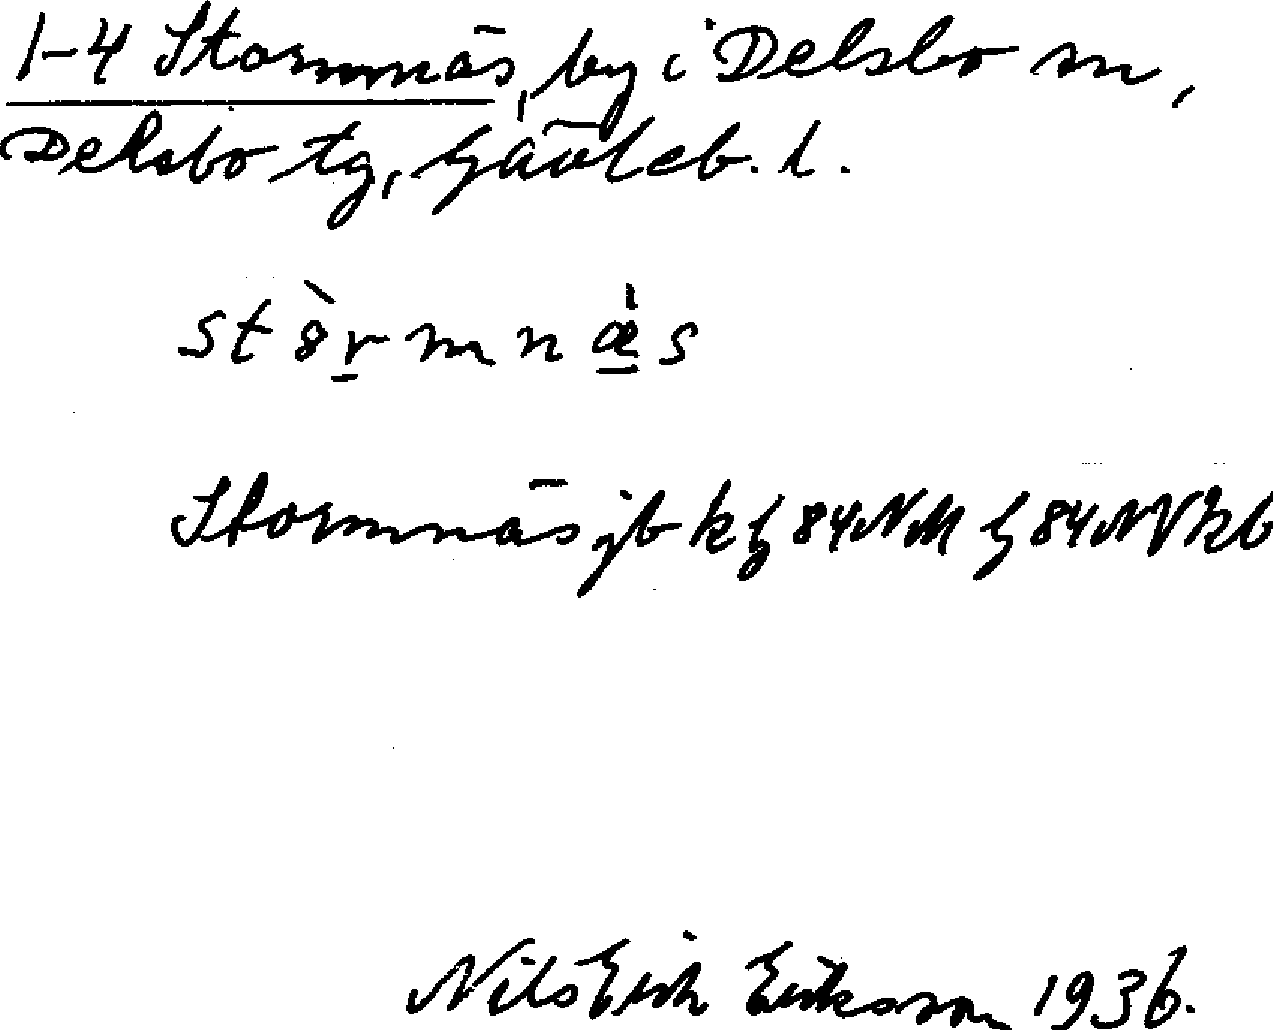 1-4 Stormnäs, by i Delsbo sn,
Delsbo tg, Gävleb. l.
stȣ̀r̲mnæ̲̀s
Stormnäs jb kg 84NM G 84NV kb
Nils Erik Eriksson 1936.